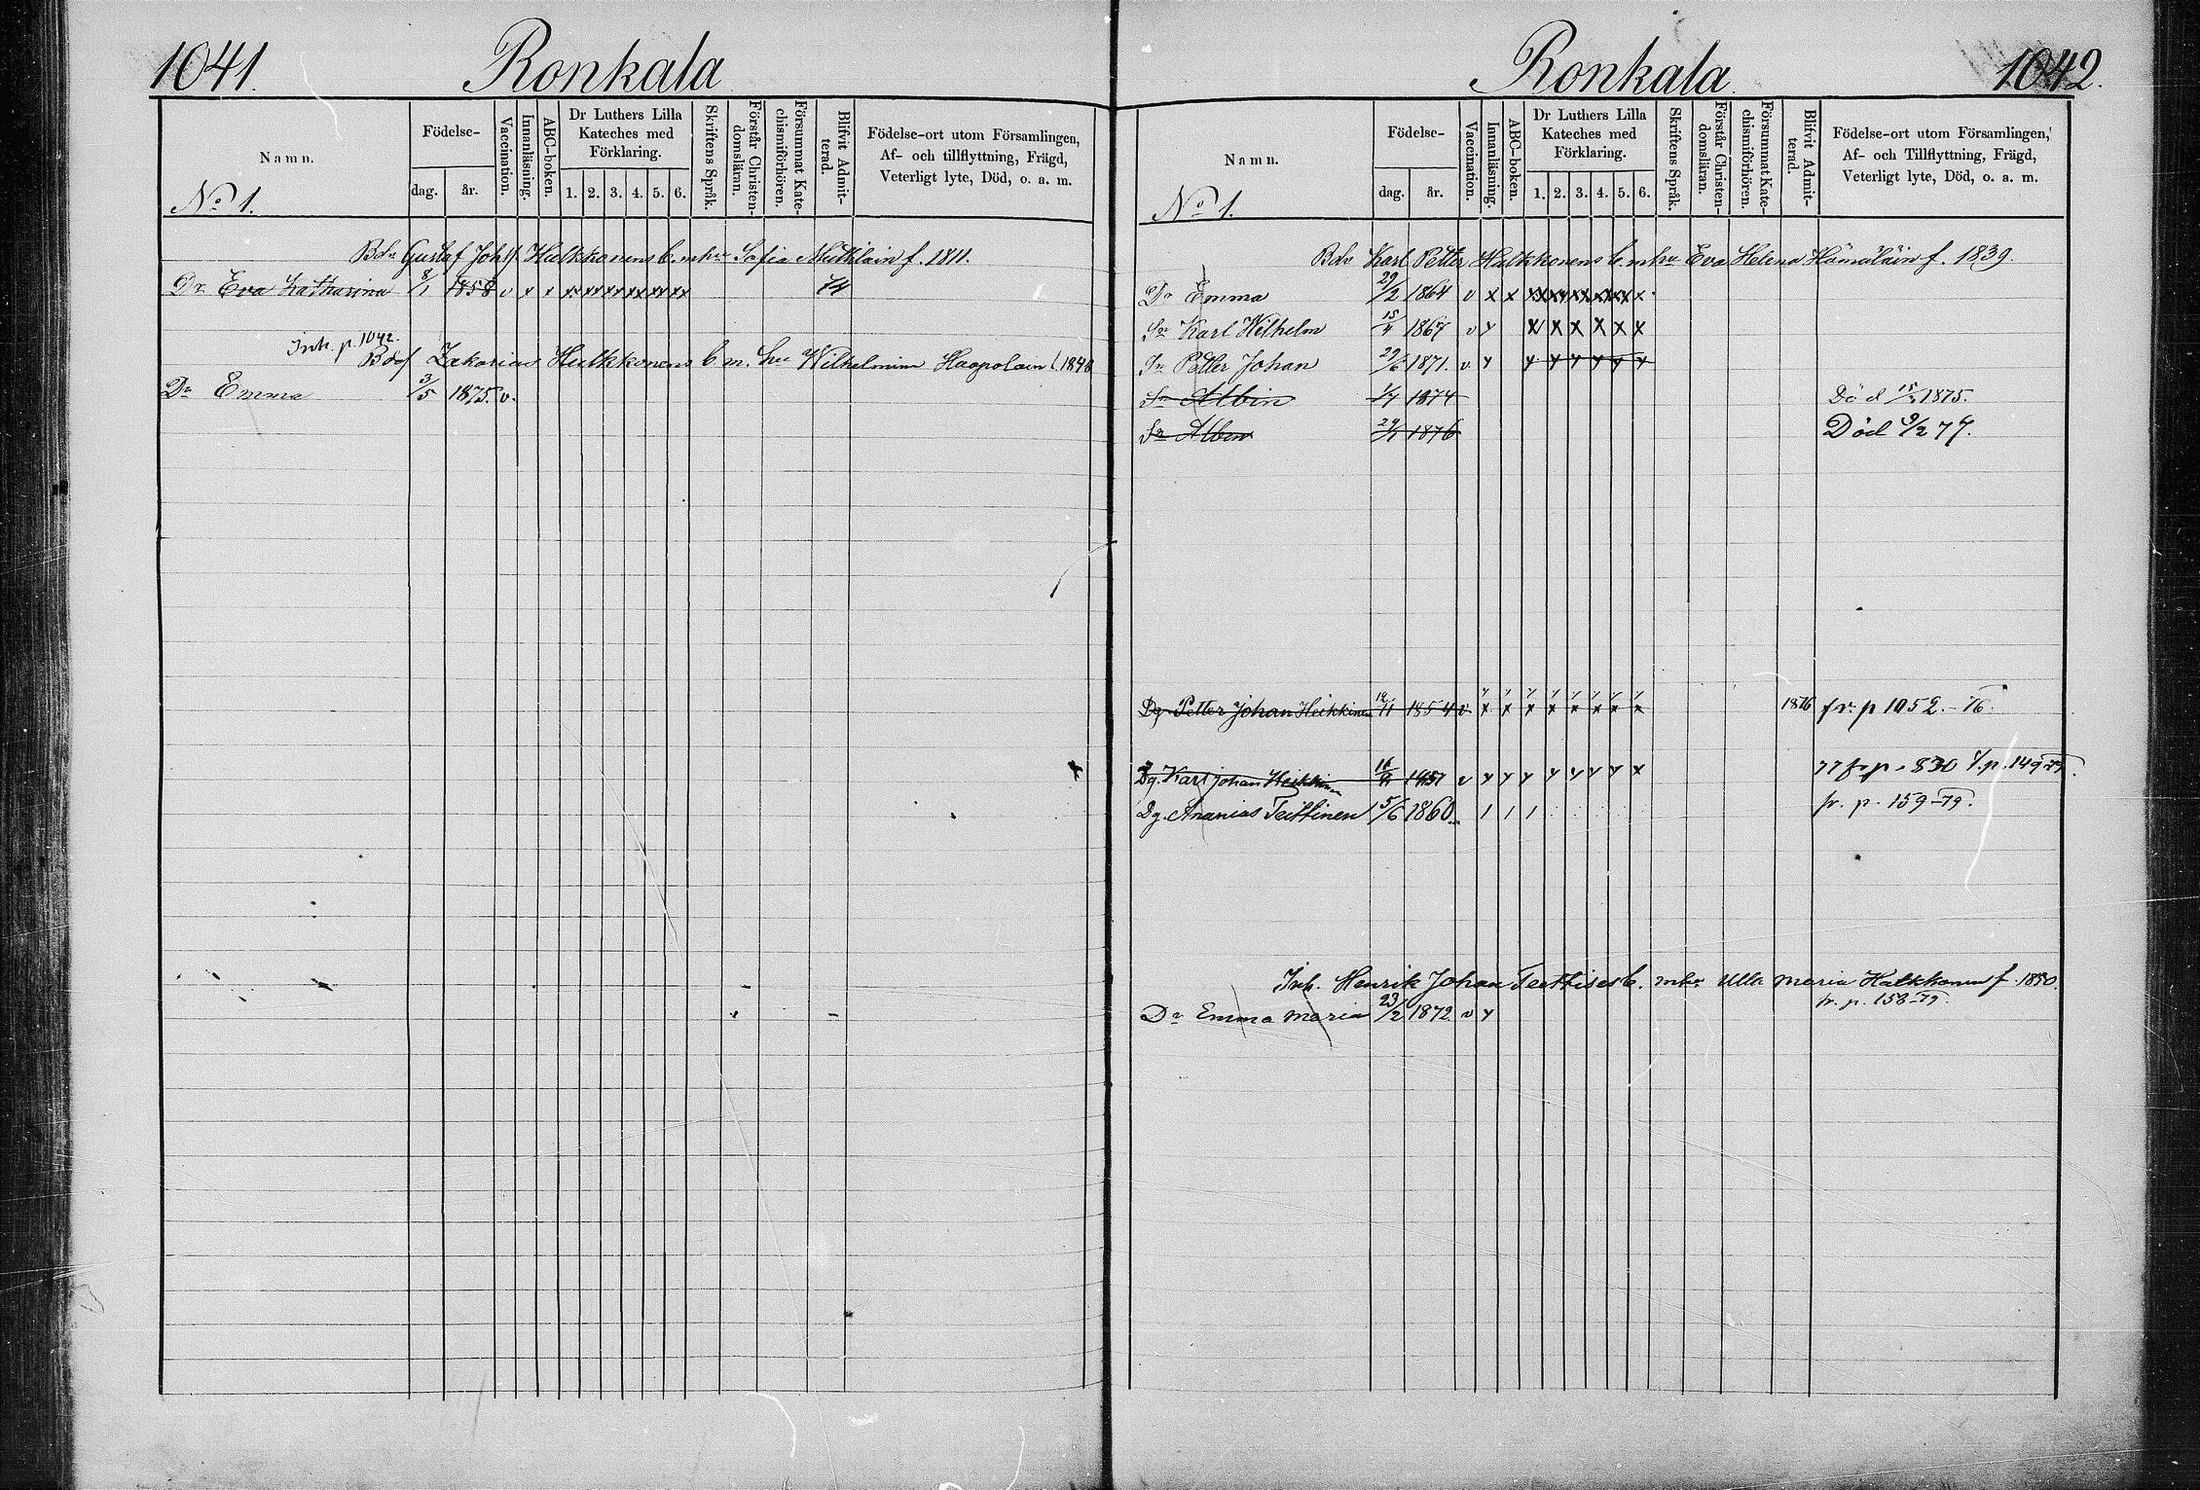 1041. Ronkala
Namn. Födelse- dag. år. Vaccination. Innanläsning. ABC-boken. Dr Luthers Lilla Kateches med Förklaring. 1. 2. 3. 4. 5. 6. Skriftens Språk. Förstår Christendomsläran. Försummat Katechismiförhören. Blifvit Admitterad. Födelse-ort utom Församlingen, Af- och tillflyttning, Frägd, Veterligt lyte, Död, o. a. m.
No 1.
Bdr Gustaf Johs Hulkkonens b. m hu Sofia f. 1811.
Dr Eva Katharina 8/1 1858 v x x x x x x x x 74
Inh. p. 1042.
Zakarias Hulkkonens b m. hu Wilhelmina Haapolain
Dr Emma 3/5 1875. v.
Ronkala 1042.
Namn. Födelse- dag. år. Vaccination. Innanläsning. ABC-boken. Dr Luthers Lilla Kateches med Förklaring. 1. 2. 3. 4. 5. 6. Skriftens Språk. Förstår Christendomsläran. Försummat Katechismiförhören. Blifvit Admitterad. Födelse-ort utom Församlingen, Af- och Tillflyttning, Frägd, Veterligt lyte, Död, o. a. m.
No 1.
Bdr Karl Petter Hulkkonens b. m hu Eva Helena Hämäläin f. 1839
Dr Emma 29/2 1864 v x x x x x x x x
Sn Karl Wilhelm 1867 v y x x x x x x
Sn Petter Johan 29/6 1871. v y y y y y y y
Sn Albin 1874 Död 1875.
Sn Albin 1876 Död 9/2 77.
Dg. Petter Johan Heikkinen 1854 v x x x x x x x x 1876 fr. p 1052. -76.
Dg. Karl Johan Heikkinen v y y y y y y y x 77 fr p. 830 t. p. 149-79.
Dg. Ananias Teittinen 5/6 1860 1 1 1 fr. p. 159-79.
Inh. Henrik Johan b. m hu Ulla Maria Hulkkonen f. 1850.
fr. p. 158-79.
Dr Emma Maria 23/2 1872 v y